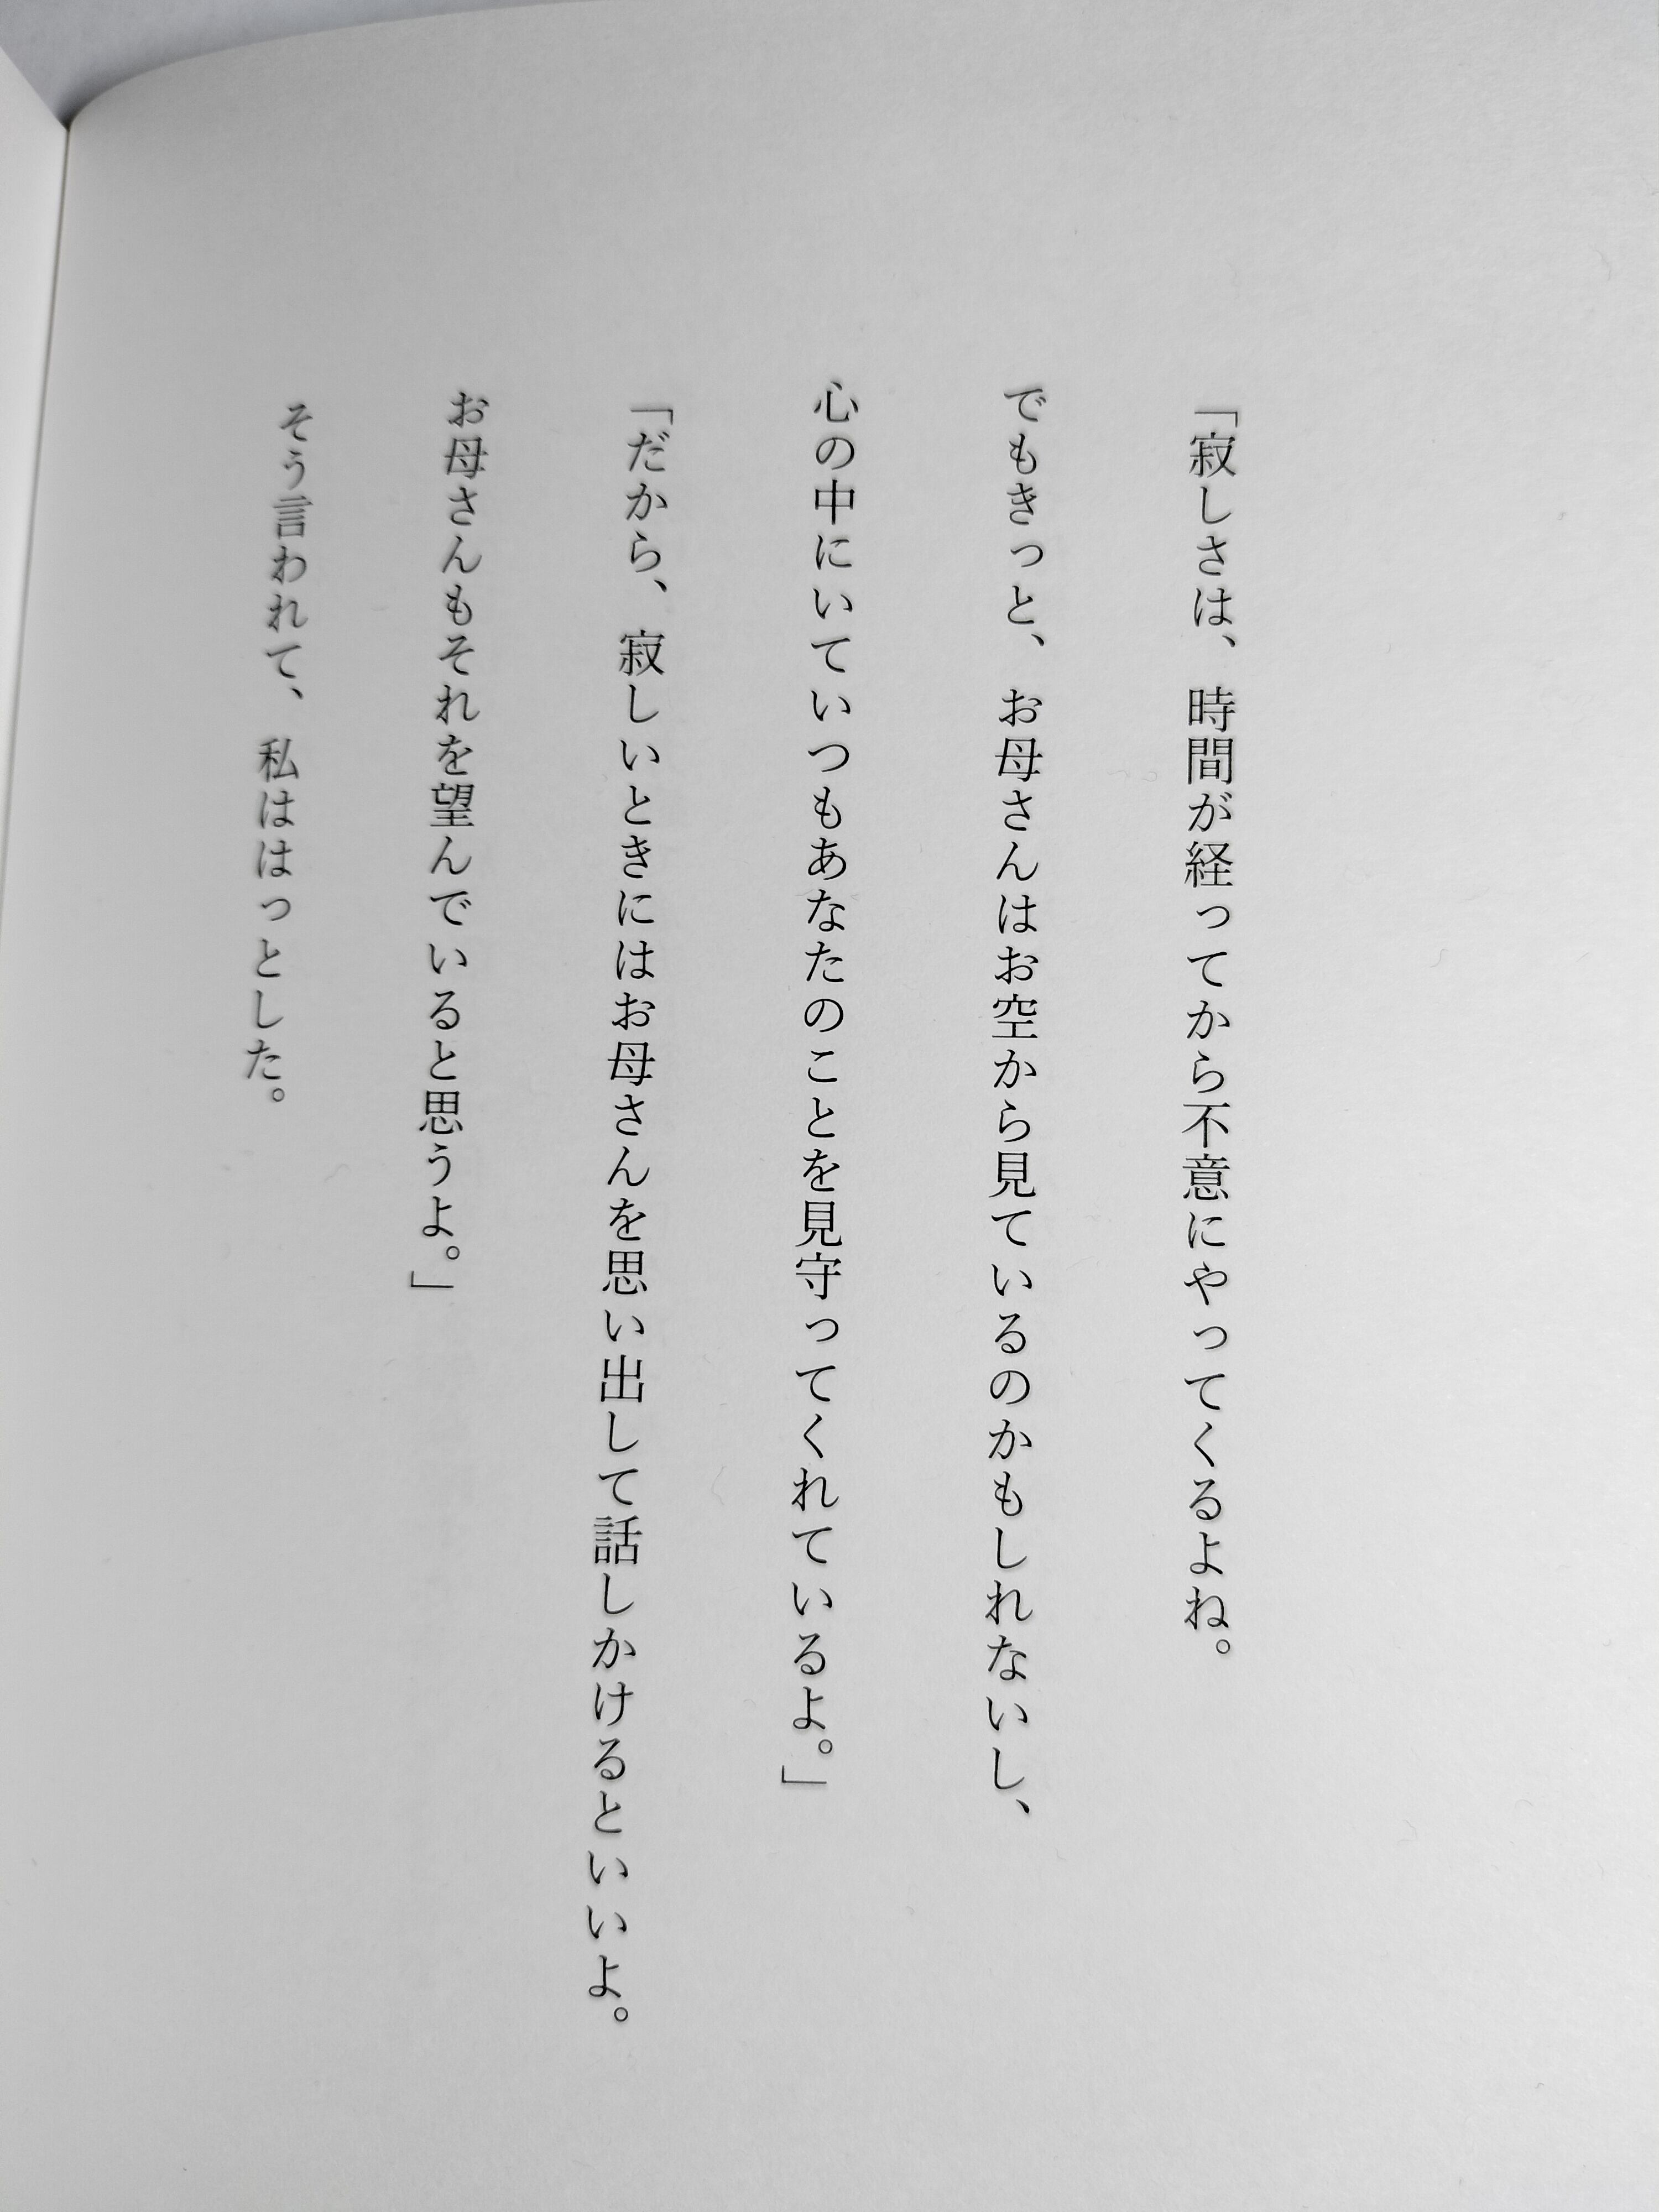 「寂しさは、時間が経ってから不意にやってくるよね。
でもきっと、お母さんはお空から見ているのかもしれないし、
心の中にいていつもあなたのことを見守ってくれているよ。」
「だから、寂しいときにはお母さんを思い出して話しかけるといいよ。
お母さんもそれを望んでいると思うよ。」
そう言われて、私ははっとした。